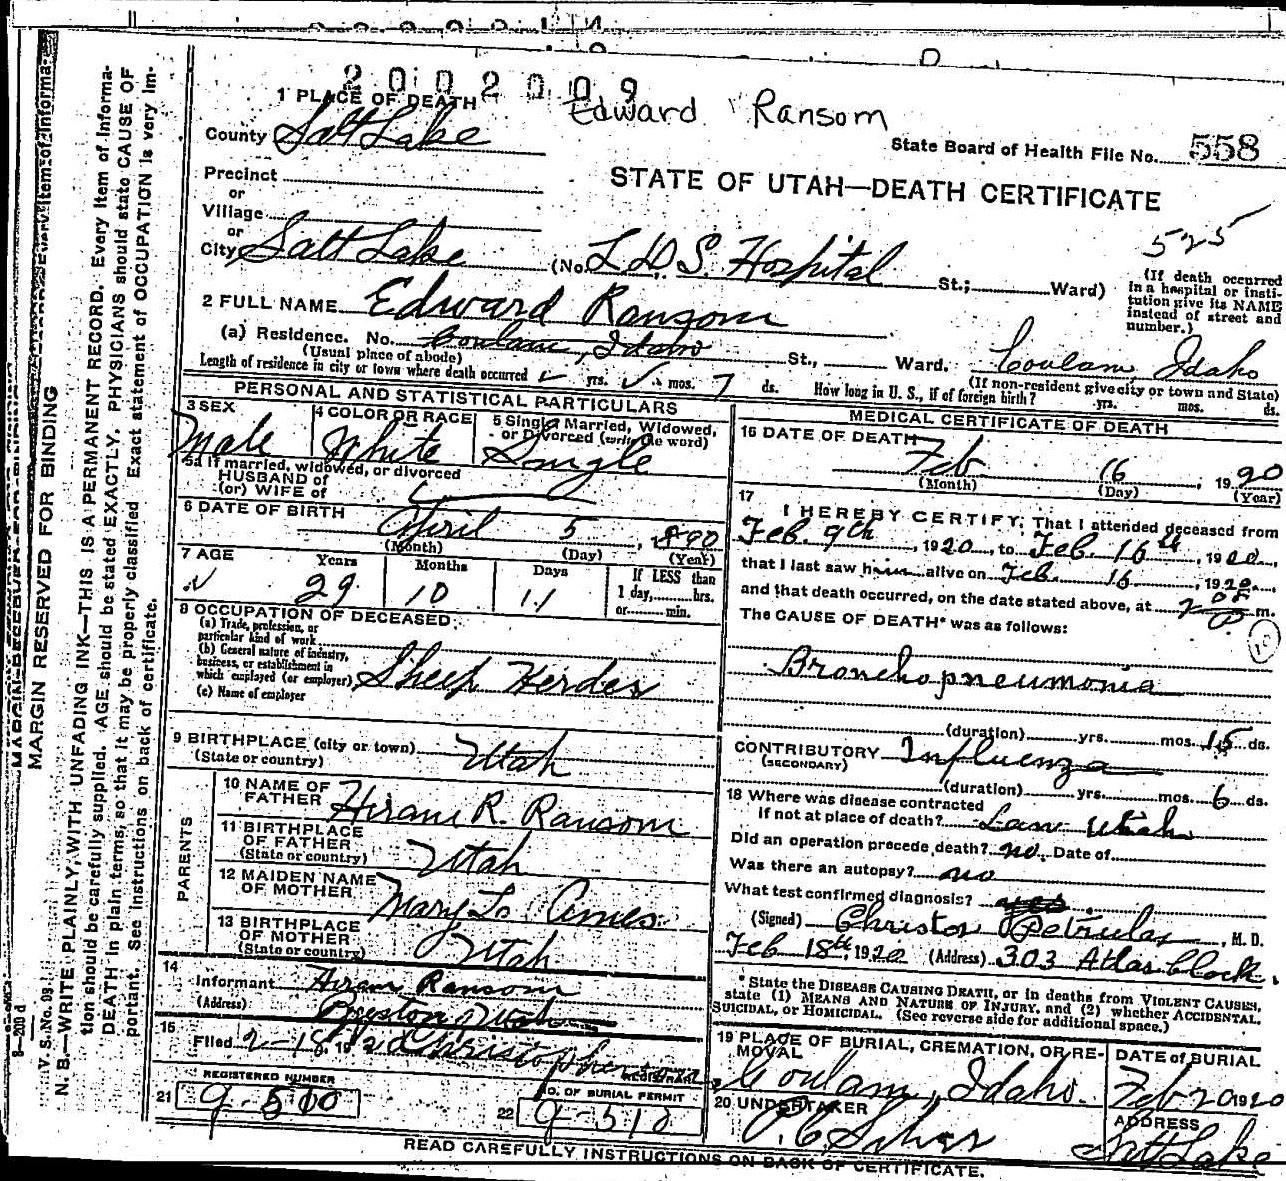 2002009
Edward Ransom
1 PLACE OF DEATH
County Salt Lake
State Board of Health File No. 558
STATE OF UTAH—DEATH CERTIFICATE
Precinct
or
Village
or
City Salt Lake (No. L.D.S. Hospital St.; Ward)
525
(If death occurred in a hospital or institution give its NAME instead of street and number.)
2 FULL NAME Edward Ransom
(a) Residence. No. Coulam, Idaho St., Ward. Coulam Idaho
(Usual place of abode) (If non-resident give city or town and State)
Length of residence in city or town where death occurred yrs. mos. 7 ds. How long in U. S., if of foreign birth? yrs. mos. ds.
PERSONAL AND STATISTICAL PARTICULARS
3 SEX Male
4 COLOR OR RACE White
5 Single, Married, Widowed, or Divorced (write the word) Single
5a If married, widowed, or divorced
HUSBAND of
(or) WIFE of
6 DATE OF BIRTH April 5, 1890
(Month) (Day) (Year)
7 AGE Years 29 Months 10 Days 11
If LESS than 1 day, hrs. or min.
8 OCCUPATION OF DECEASED
(a) Trade, profession, or particular kind of work
(b) General nature of industry, business, or establishment in which employed (or employer) Sheep Herder
(c) Name of employer
9 BIRTHPLACE (city or town) Utah
(State or country)
PARENTS
10 NAME OF FATHER Hiram R. Ransom
11 BIRTHPLACE OF FATHER Utah
(State or country)
12 MAIDEN NAME OF MOTHER Mary L. Ames
13 BIRTHPLACE OF MOTHER Utah
(State or country)
14
Informant Hiram Ransom
(Address) Payston, Utah
15
Filed 2-18, 1920 Christopherson
REGISTRAR
REGISTERED NUMBER
21 9-500
NO. OF BURIAL PERMIT
22 9-510
MEDICAL CERTIFICATE OF DEATH
16 DATE OF DEATH
Feb 16, 1920
(Month) (Day) (Year)
17
I HEREBY CERTIFY, That I attended deceased from
Feb. 9th, 1920, to Feb. 16th, 1920,
that I last saw him alive on Feb. 16, 1920,
and that death occurred, on the date stated above, at 2 P m.
The CAUSE OF DEATH* was as follows:
10
Bronchopneumonia
(duration) yrs. mos. 15 ds.
CONTRIBUTORY Influenza
(SECONDARY)
(duration) yrs. mos. 6 ds.
18 Where was disease contracted
if not at place of death? Law Utah
Did an operation precede death? no. Date of
Was there an autopsy? no
What test confirmed diagnosis? yes
(Signed) Christos Petrulas, M. D.
Feb 18th, 1920 (Address) 303 Atlas block.
*State the DISEASE CAUSING DEATH, or in deaths from VIOLENT CAUSES, state (1) MEANS AND NATURE OF INJURY, and (2) whether ACCIDENTAL, SUICIDAL, or HOMICIDAL. (See reverse side for additional space.)
19 PLACE OF BURIAL, CREMATION, OR REMOVAL
Coulam, Idaho.
DATE of BURIAL
Feb 20 1920
20 UNDERTAKER
ADDRESS
Salt Lake
READ CAREFULLY INSTRUCTIONS ON BACK OF CERTIFICATE.
MARGIN RESERVED FOR BINDING
V. S. No. 99
N. B.—WRITE PLAINLY, WITH UNFADING INK—THIS IS A PERMANENT RECORD. Every item of information should be carefully supplied. AGE should be stated EXACTLY. PHYSICIANS should state CAUSE OF DEATH in plain terms, so that it may be properly classified. Exact statement of OCCUPATION is very important. See instructions on back of certificate.